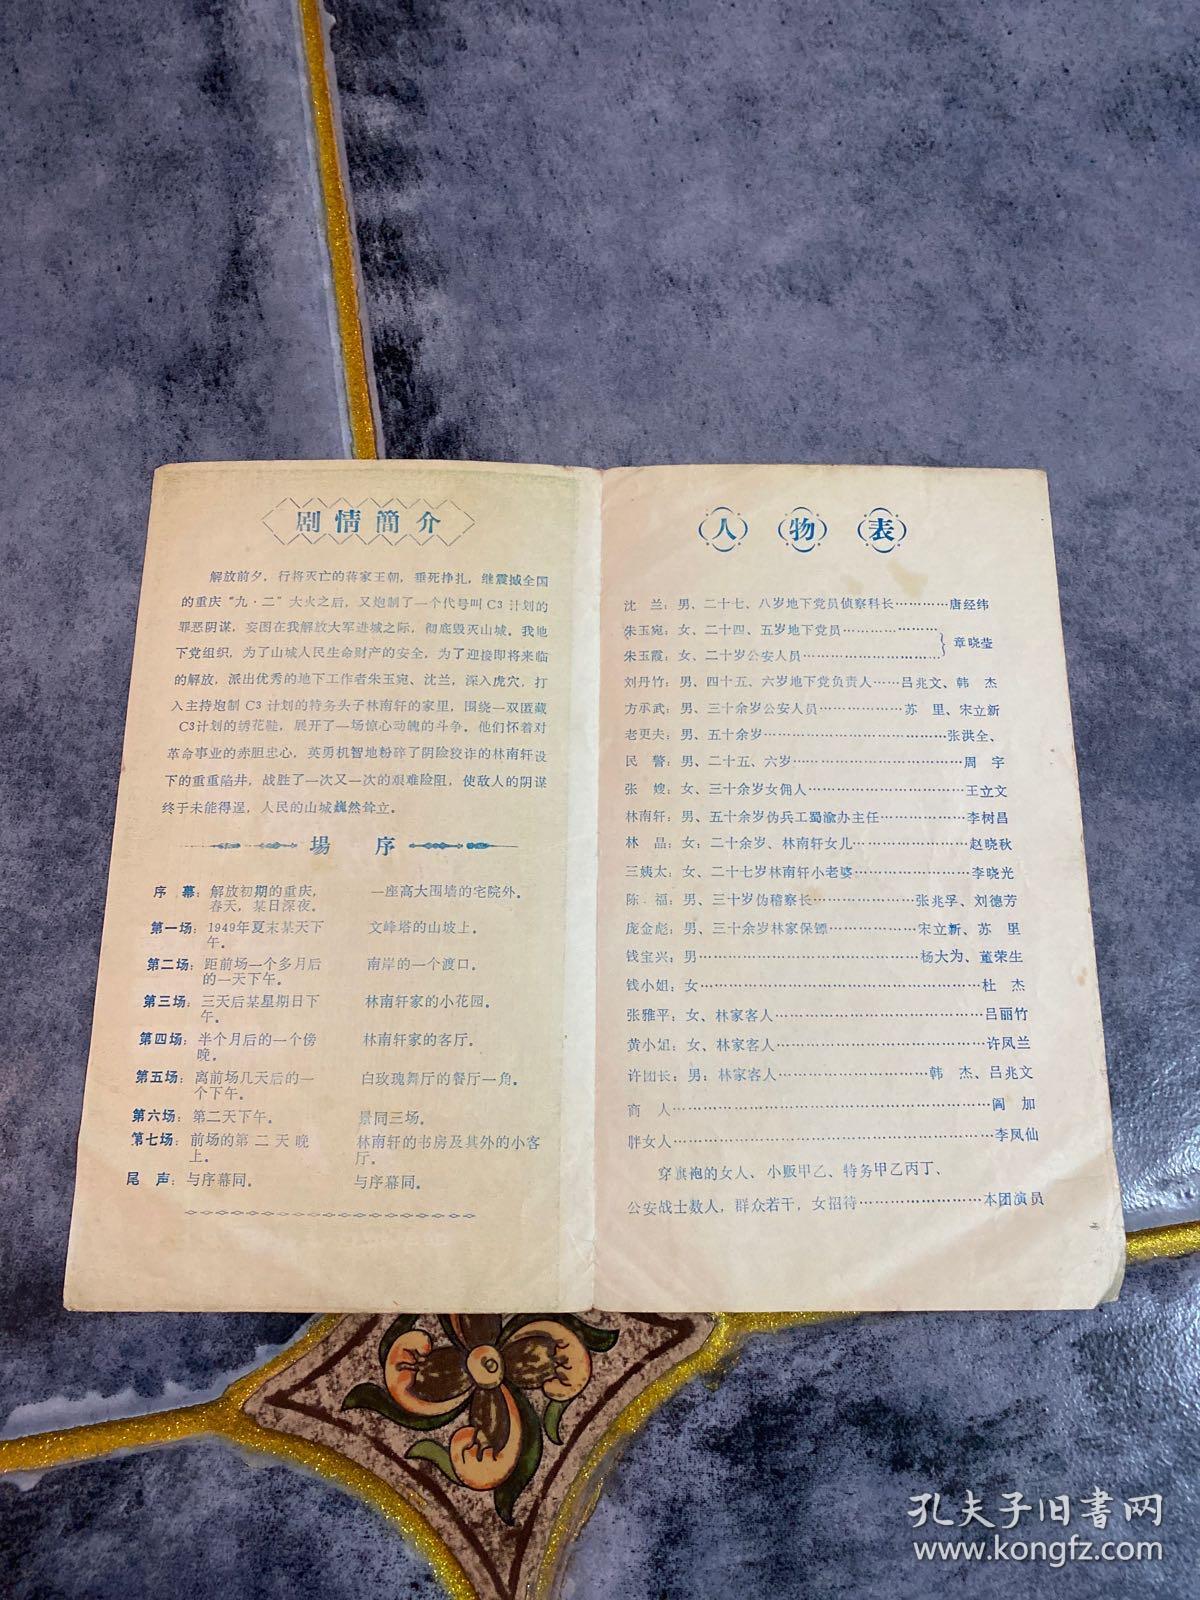 剧情簡介
解放前夕，行将灭亡的蒋家王朝，垂死挣扎，继震撼全国
的重庆“九·二”大火之后，又炮制了一个代号叫C3计划的
罪恶阴谋，妄图在我解放大军进城之际，彻底毁灭山城。我地
下党组织，为了山城人民生命财产的安全，为了迎接即将来临
的解放，派出优秀的地下工作者朱玉宛、沈兰，深入虎穴，打
入主持炮制C3计划的特务头子林南轩的家里，围绕一双匿藏
C3计划的绣花鞋，展开了一场惊心动魄的斗争。他们怀着对
革命事业的赤胆忠心，英勇机智地粉碎了阴险狡诈的林南轩设
下的重重陷井，战胜了一次又一次的艰难险阻，使敌人的阴谋
终于未能得逞，人民的山城巍然耸立。
場序
序幕：解放初期的重庆， 一座高大围墙的宅院外。
春天，某日深夜。
第一场：1949年夏末某天下 文峰塔的山坡上。
午。
第二场：距前场一个多月后 南岸的一个渡口。
的一天下午。
第三场：三天后某星期日下 林南轩家的小花园。
午。
第四场：半个月后的一个傍 林南轩家的客厅。
晚。
第五场：离前场几天后的一 白玫瑰舞厅的餐厅一角。
个下午。
第六场：第二天下午。 景同三场。
第七场：前场的第二天晚 林南轩的书房及其外的小客
上。 厅。
尾声：与序幕同。 与序幕同。
人物表
沈兰：男、二十七、八岁地下党员侦察科长…………唐经纬
朱玉宛：女、二十四、五岁地下党员…………………
朱玉霞：女、二十岁公安人员………………………… } 章晓莹
刘丹竹：男、四十五、六岁地下党负责人……吕兆文、韩杰
方承武：男、三十余岁公安人员………………苏里、宋立新
老更夫：男、五十余岁………………………………张洪全、
民警：男、二十五、六岁……………………………周宇
张嫂：女、三十余岁女佣人…………………………王立文
林南轩：男、五十余岁伪兵工蜀渝办主任………………李树昌
林晶：女：二十余岁、林南轩女儿……………………赵晓秋
三姨太：女、二十七岁林南轩小老婆……………………李晓光
陈福：男、三十岁伪稽察长…………………张兆孚、刘德芳
庞金彪：男、三十余岁林家保镖………………宋立新、苏里
钱宝兴：男……………………………………杨大为、董荣生
钱小姐：女………………………………………………杜杰
张雅平：女、林家客人…………………………………吕丽竹
黄小姐：女、林家客人…………………………………许凤兰
许团长：男：林家客人………………………韩杰、吕兆文
商人……………………………………………………阎加
胖女人……………………………………………………李凤仙
穿旗袍的女人、小贩甲乙、特务甲乙丙丁、
公安战士数人，群众若干，女招待……………………本团演员
孔夫子旧书网
www.kongfz.com